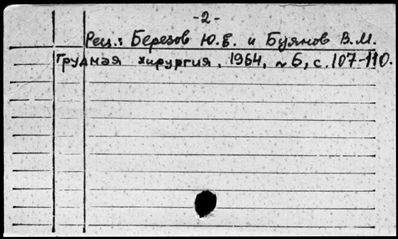 -2-
Рец.: Березов Ю.Е. и Буянов В.М.
Грудная хирургия, 1964, №6, с.107-110.